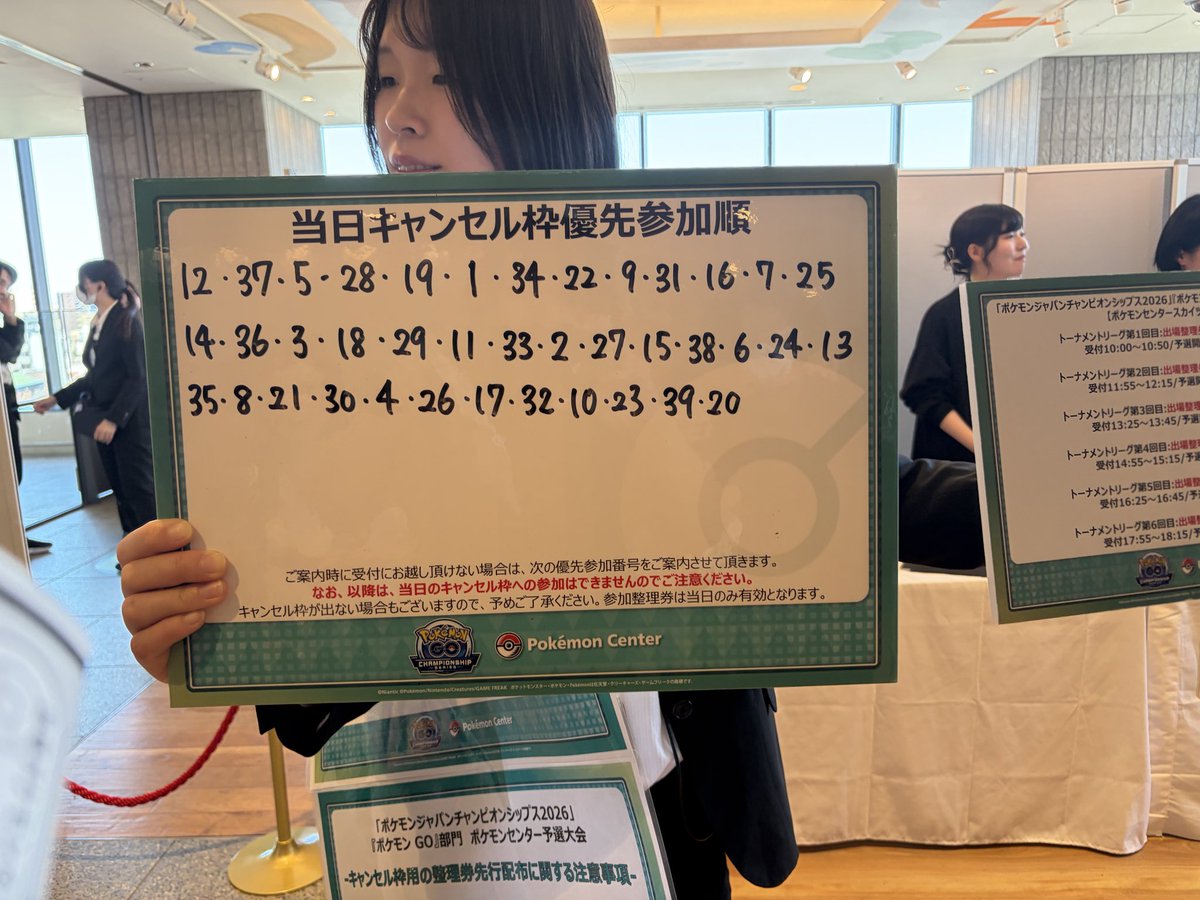 当日キャンセル枠優先参加順
12・37・5・28・19・1・34・22・9・31・16・7・25
14・36・3・18・29・11・33・2・27・15・38・6・24・13
35・8・21・30・4・26・17・32・10・23・39・20
ご案内時に受付にお越し頂けない場合は、次の優先参加番号をご案内させて頂きます。
なお、以降は、当日のキャンセル枠への参加はできませんのでご注意ください。
キャンセル枠が出ない場合もございますので、予めご了承ください。参加整理券は当日のみ有効となります。
POKÉMON GO CHAMPIONSHIP SERIES
Pokémon Center
©Niantic ©Pokémon/Nintendo/Creatures/GAME FREAK ポケットモンスター・ポケモン・Pokémonは任天堂・クリーチャーズ・ゲームフリークの商標です。
Pokémon Center
「ポケモンジャパンチャンピオンシップス2026」
『ポケモン GO』部門 ポケモンセンター予選大会
-キャンセル枠用の整理券先行配布に関する注意事項-
「ポケモンジャパンチャンピオンシップス2026」『ポケモ
【ポケモンセンタースカイツ
トーナメントリーグ第1回目:出場整理
受付10:00～10:50/予選開
トーナメントリーグ第2回目:出場整理
受付11:55～12:15/予選
トーナメントリーグ第3回目:出場整理
受付13:25～13:45/予選
トーナメントリーグ第4回目:出場整理
受付14:55～15:15/予選
トーナメントリーグ第5回目:出場整理
受付16:25～16:45/予選
トーナメントリーグ第6回目:出場整理
受付17:55～18:15/予選